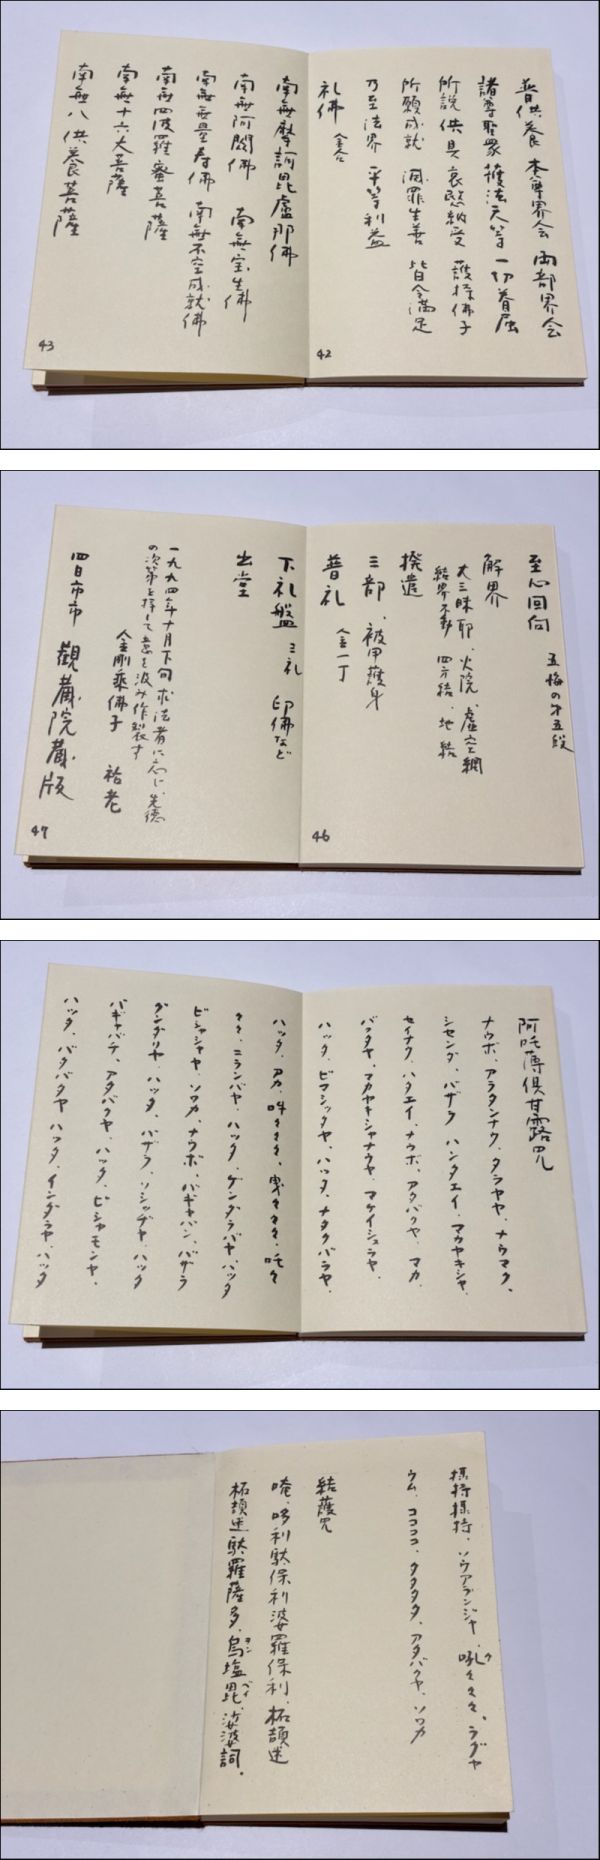 普供養 本尊界会 両部界会
諸尊聖衆 護法天等 一切眷属
所説供具 哀愍納受 護持佛子
所願成就 滅罪生善 皆令満足
乃至法界 平等利益
礼佛 金合
42
南無摩訶毘盧那佛
南無阿閦佛 南無宝生佛
南無無量寿佛 南無不空成就佛
南無四波羅蜜菩薩
南無十六大菩薩
南無八供養菩薩
43
至心回向 五悔の第五段
解界
大三昧耶、火院、虚空網
結界不動 四方結、地結
撥遣
三部、被甲護身
普礼 金一丁
46
下礼盤 三礼 印佛など
出堂
一九九四年十月下旬求法者に応じ、先徳
の次第を拝して意を汲み作製す
金剛乗佛子 祐老
四日市市 観蔵院蔵版
47
阿吒薄倶甘露咒
ナウボ、アラタンナウ、タラヤヤ、ナウマク、
シセンダ、バザラ ハンタエイ、マカヤキシャ、
セイナウ、ハタエイ、ナウボ、アタバクヤ、マカ、
バッタヤ、マカヤキシャナウヤ、マケイシュラヤ、
ハッタ、ビマシッタヤ、ハッタ、ナタクバラヤ、
ハッタ、アカ、吽々々々、曳々々々、吒々
々々、ニランバヤ、ハッタ、ゲンダラバヤ、ハッタ
ビシャシャヤ、ソワカ、ナウボ、バギャバン、バザラ
グンダリヤ、ハッタ、バザラ、ソシッヂヤ、ハッタ
バギャバテ、アタバクヤ、ハッタ、ビシャモンヤ、
ハッタ、バタバタヤ ハッタ、インダラヤ、ハッタ
摸持摸持、ソウアランジャ、吼々々々、ラダヤ
ウム、ココココ、タタタタ、アタバクヤ、ソワカ
結護咒
唵、哆利駄保利婆羅保利、柘頡迷
柘頡迷駄羅薩多、烏塩毘、娑婆訶。